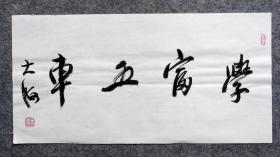 學富五車
大海